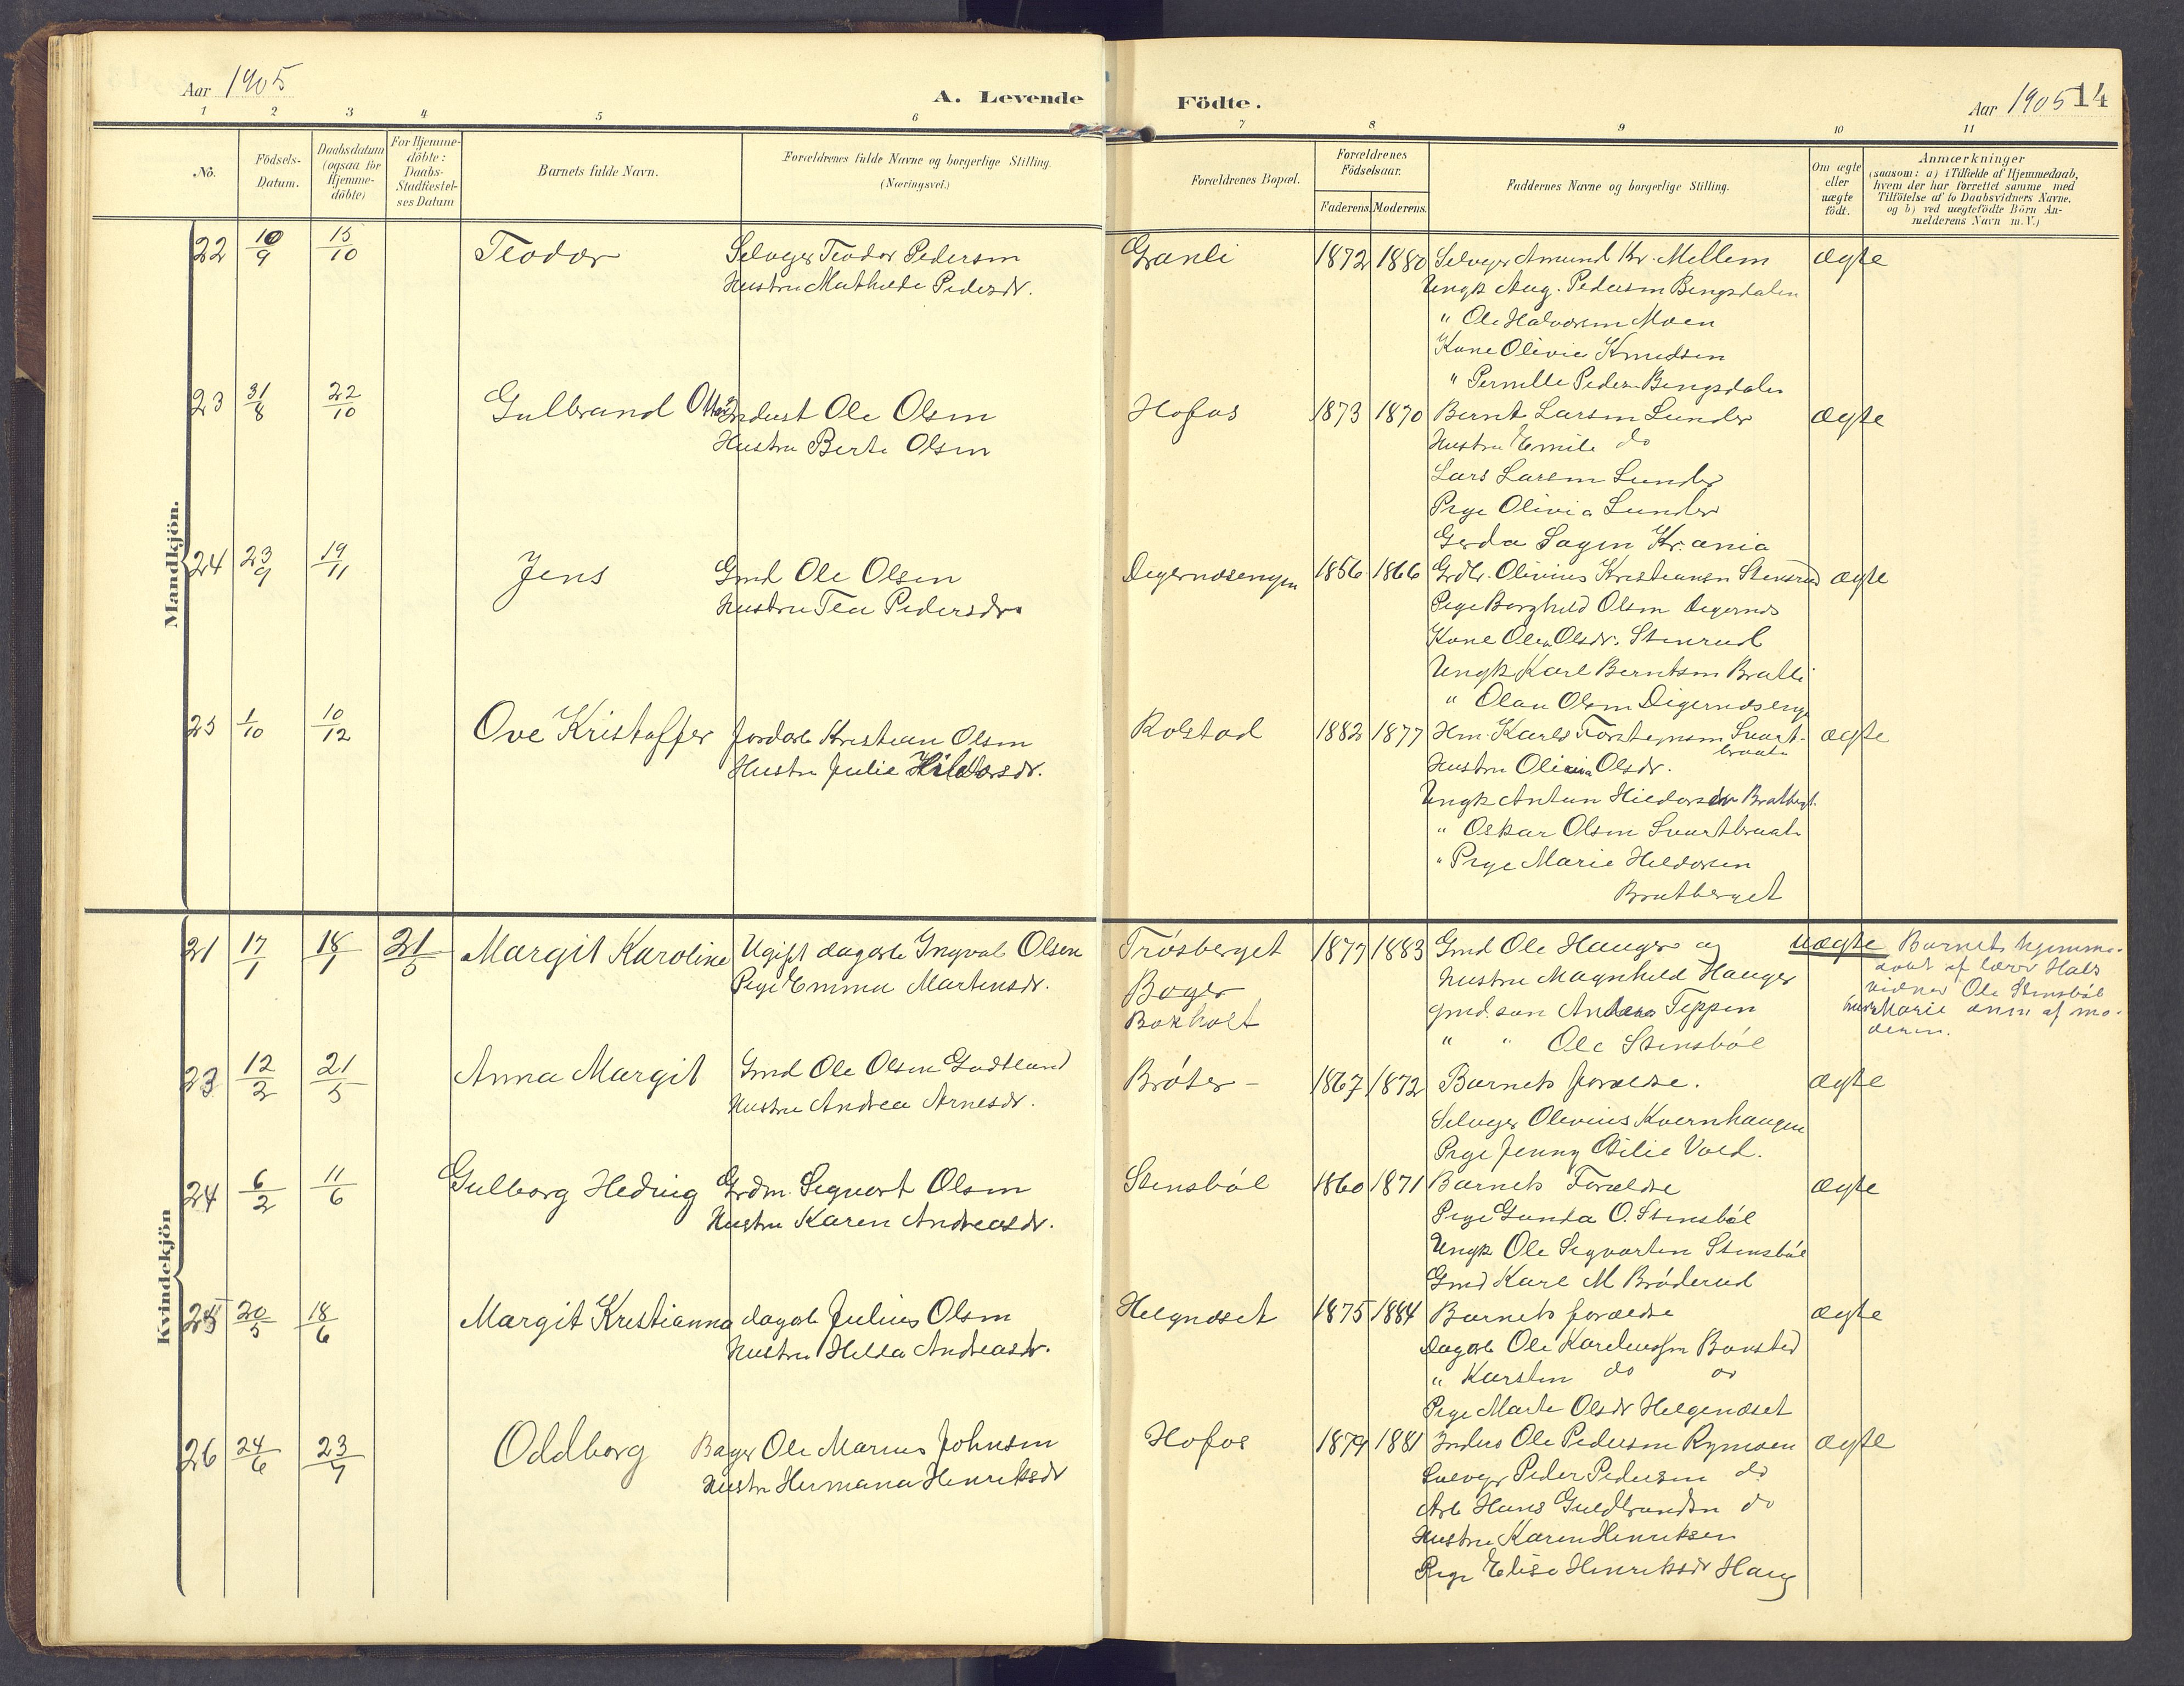 Aar 1905
A. Levende Födte.
Aar 1905 14
1 2 3 4 5 6 7 8 9 10 11
No.
Födsels-Datum.
Daabsdatum (ogsaa for Hjemme-döbte)
For Hjemme-döbte: Daabs-Stadfæstel-ses Datum
Barnets fulde Navn.
Forældrenes fulde Navne og borgerlige Stilling. (Næringsvei.)
Forældrenes Bopæl.
Forældrenes Födselsaar.
Faderens. Moderens.
Faddernes Navne og borgerlige Stilling.
Om ægte eller uægte födt.
Anmærkninger
(saasom: a) i Tilfælde af Hjemmedaab,
hvem der har forrettet samme med
Tilföielse af to Daabsvidners Navne,
og b) ved uægtefödte Börn An-
melderens Navn m. V.)
Mandkjön.
22 10/9 15/10 Teodor Selveger Teodor Pedersen Granli 1872 1880 Selveger Amund Kr. Mellem ægte
Hustru Mathilde Pedersdr. Ungk Aug. Pedersen Bengsdalen
" Ole Halvorsen Moen
Kone Olivie Knudsen
" Pernille Peders Bengsdalen
23 31/8 22/10 Gulbrand Otto Indust Ole Olsen Hofos 1873 1870 Bernt Larsen Lunder ægte
Hustru Berte Olsen Hustru Emile do
Lars Larsen Lunder
Pige Olivia Lunder
Gerda Sagen Kr.ania
24 23/9 19/11 Jens Gmd Ole Olsen Degernæsengen 1856 1866 Grdbr. Olivius Kristiansen Stensrud ægte
Hustru Tea Pedersdr. Pige Borghild Olsen Degernes
Kone Olea Olsdr. Stenrud
Ungk Karl Berntsen Bralli
" Olau Olsen Digernæseng
25 1/10 10/12 Ove Kristoffer Jordarb Kristian Olsen Rolstad 1882 1877 Hm. Karls Torstensen Svart-braaten ægte
Hustru Julie Hildorsdr. Hustru Olivia Olsdr.
Ungk Anton Hildorsen Bratberget
" Oskar Olsen Svartbraaten
" Pige Marie Hildorsen
Bratberget
Kvindekjön
21 17/1 18/1 21/5 Margit Karoline Ugift dagarb Ingval Olsen Trøsberget 1877 1883 Gmd Ole Hauger og uægte Barnet hjemme-
Pige Emma Martinsdr. Bager Hustru Magnhild Hauger døbt af lærer Hals
Bakholt Gmd.søn Anders Teppen vidner Ole Stensbøl
" " Ole Stensbøl Marie anm af mo-
deren.
23 12/2 21/5 Anna Margit Gmd Ole Olsen Godtland Brøter 1867 1872 Barnets forældre. ægte
Hustru Andrea Arnesdr. Selveger Olevius Kvernhaugen
Pige Jenny Otilie Vold.
24 6/2 11/6 Gulborg Hedvig Grdm. Segvart Olsen Stensbøl 1860 1871 Barnets Forældre ægte
Hustru Karen Andreasdr. Pige Gunda O. Stensbøl
Ungk Ole Segvartsen Stensbøl
Gmd Karl M Brøderud
25 20/5 18/6 Margit Kristianna dagarb Julius Olsen Helgnæset 1875 1884 Barnets forældre ægte
Hustru Hilda Andreasdr. Dagarb Ole Bonsted
" Karsten do do
Pige Marte Olsdr Helgenæset
26 24/6 23/7 Oddborg Bager Ole Marius Johnsen Hofos 1879 1881 Indus Ole Pedersen Rymoen ægte
Hustru Hermana Henriksdr Selveger Peder Pedersen do
Arb Hans Guldbrandsen do
Hustru Karen Henriksen
Pige Elise Henriksdr Haug